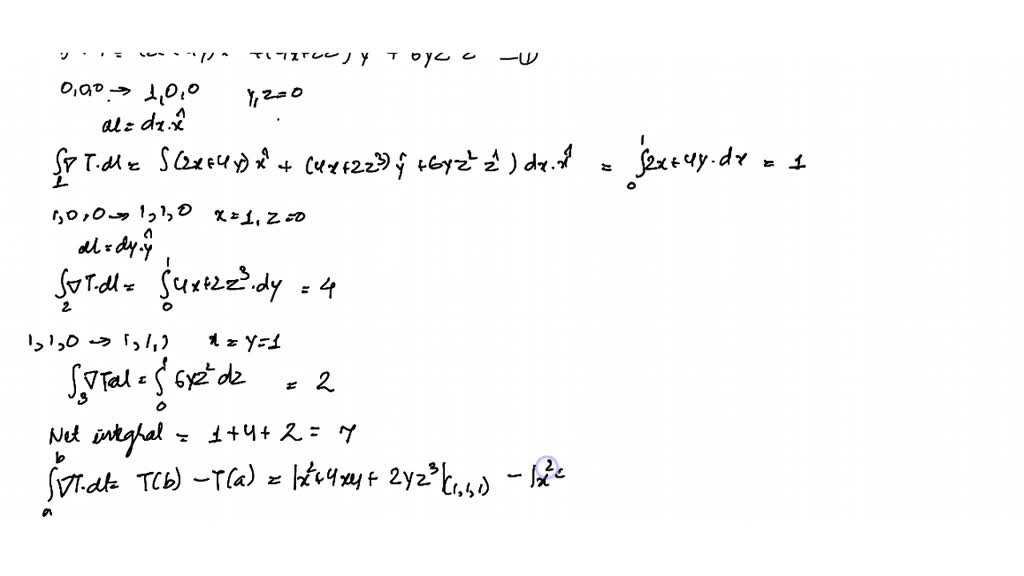 0,0,0 → 1,0,0 y,z=0
dl = dx.x̂
∫₁ ∇T.dl = ∫(2x+4y) x̂ + (4x+2z³) ŷ + 6yz² ẑ ) dx.x̂ = ∫₀¹ 2x+4y.dx = 1
1,0,0 → 1,1,0 x=1, z=0
dl = dy.ŷ
∫₂ ∇T.dl = ∫₀¹ 4x+2z³.dy = 4
1,1,0 → 1,1,1 x = y=1
∫₃ ∇T dl = ∫₀¹ 6yz² dz = 2
Net integral = 1+4+2 = 7
∫ₐᵇ ∇T.dl = T(b) – T(a) = |x²+4xy + 2yz³|(1,1,1) – |x²